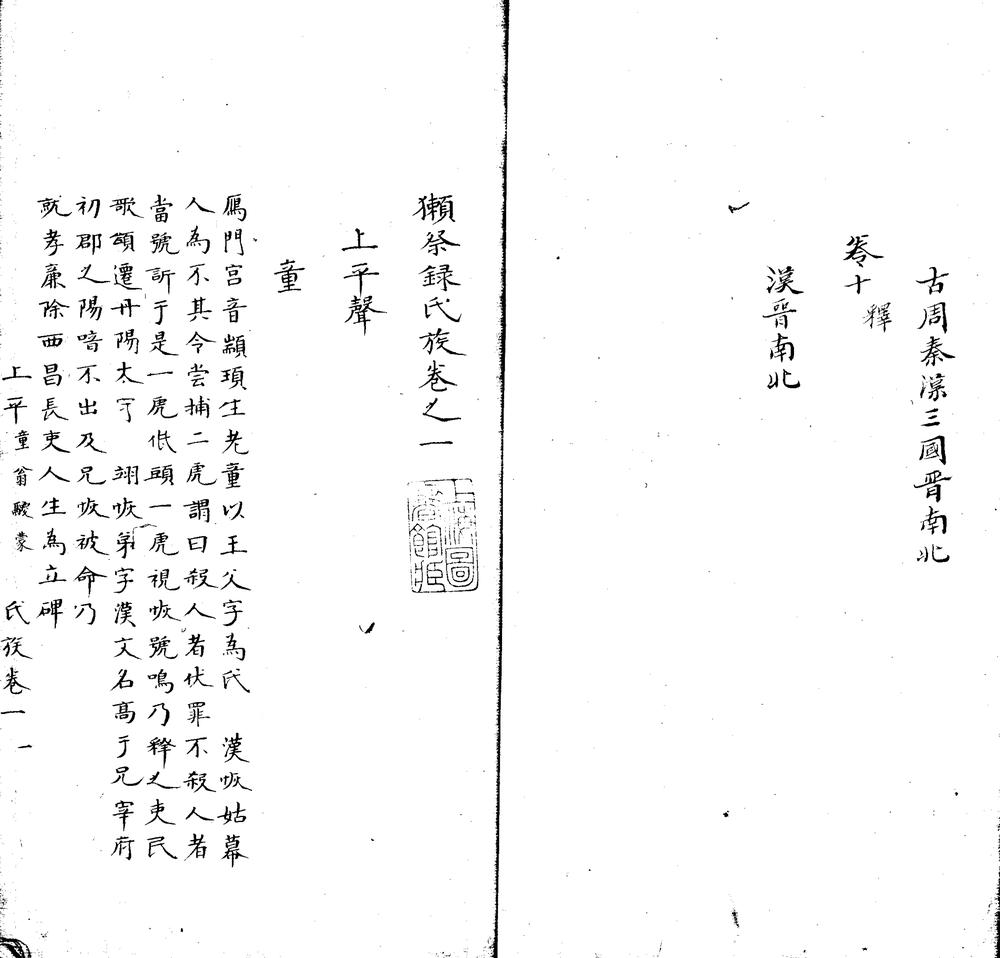 古周秦漢三國晋南北
卷十
釋
漢晋南北
獺祭録氏族卷之一
上海圖書館藏
上平聲
童
鴈門宫音顓頊生老童以王父字為氏　漢恢姑幕
人為不其令尝捕二虎謂曰殺人者伏罪不殺人者
當號訴于是一虎低頭一虎視恢號鳴乃釋之吏民
歌頌遷丹陽太守　翊恢弟字漢文名高于兄宰府
初郡之陽喑不出及兄恢被命乃
就孝廉除西昌長吏人生為立碑
上平童翁 蒙　氏族卷一　一